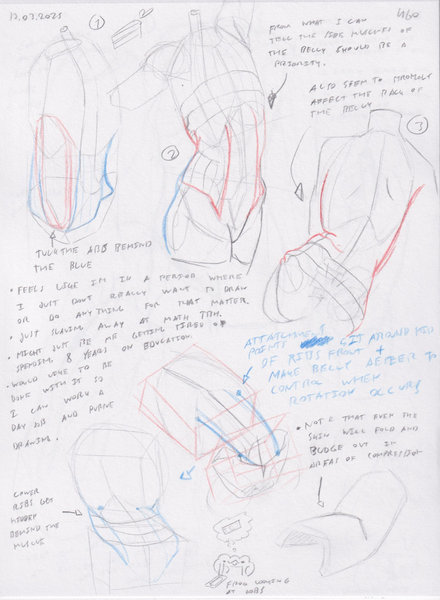 13.03.2025
1
FROM WHAT I CAN
TELL THE SIDE MUSCLES OF
THE BELLY SHOULD BE A
PRIORITY.
ALSO SEEM TO STRONGLY
AFFECT THE BACK OF
THE BELLY
2
3
TUCK THE ABS BEHIND
THE BLUE
• FEELS LIKE I'M IN A PERIOD WHERE
I JUST DONT REALLY WANT TO DRAW
OR DO ANYTHING FOR THAT MATTER.
• JUST SLAVING AWAY AT MATH TBH.
• MIGHT JUST BE ME GETTING TIRED OF
SPENDING 8 YEARS ON EDUCATION.
• WOULD LOVE TO BE
DONE WITH IT SO
I CAN WORK A
DAY JOB AND PURSUE
DRAWING.
ATTATCHMENT
POINTS SIT AROUND MID
OF RIBS FRONT +
MAKE BELLY APPEAR TO
CONTROL WHEN
ROTATION OCCURS
• NOTE THAT EVEN THE
SKIN WILL FOLD AND
BUDGE OUT IN
AREAS OF COMPRESSION
LOWER
RIBS GET
HIDDEN
BEHIND THE
MUSCLE
FROG LOOKING
AT